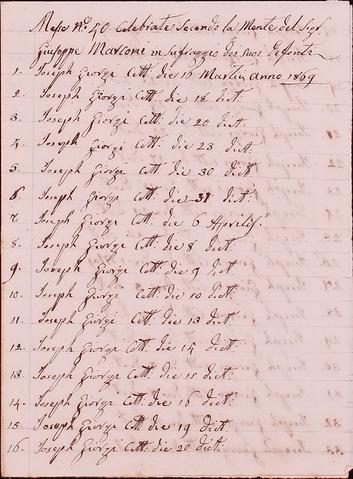 Messe N.º 40 Celebrate Secondo la Mente del Sig.r
Giuseppe Marconi in suffraggio dei suoi defonti
1. Joseph Giorgi Cett. die 16 Martii anno 1869
2. Joseph Giorgi Cett. die 18 dict.
3. Joseph Giorgi Cett. die 20 dict.
4. Joseph Giorgi Cett. die 23 dict.
5. Joseph Giorgi Cett. die 30 dict
6. Joseph Giorgi Cett. die 31 dict.
7. Joseph Giorgi Cett. die 6 Aprilis.
8. Joseph Giorgi Cett. die 8 dict
9. Joseph Giorgi Cett. die 9 dict
10. Joseph Giorgi Cett. die 10 dict.
11. Joseph Giorgi Cett. die 13 dict.
12. Joseph Giorgi Cett. die 14 dict.
13. Joseph Giorgi Cett. die 15 dict.
14. Joseph Giorgi Cett. die 16 dict.
15. Joseph Giorgi Cett. die 19 dict.
16. Joseph Giorgi Cett. die 20 dict.